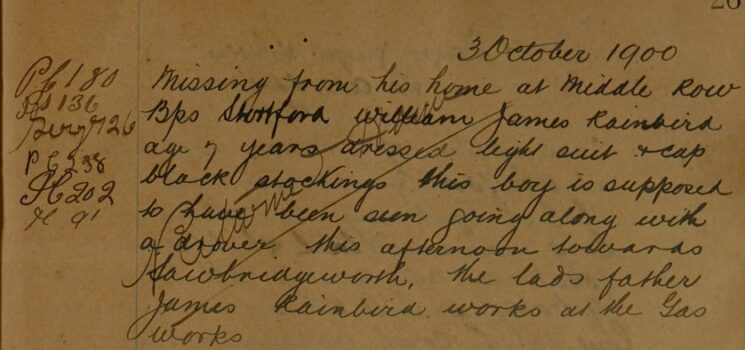 26
3 October 1900
Missing from his home at Middle Row
Bps Stortford William James Rainbird
age 7 years dressed light suit & cap
black stockings this boy is supposed
to have been seen going along with
a drover this afternoon towards
Sawbridgeworth, the lads father
James Rainbird works at the Gas
works
PC 180
136
Sergt 126
PC 238
H 202
H 91